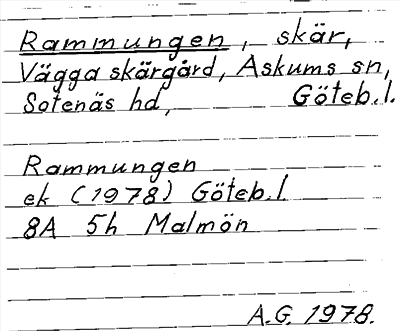 Rammungen, skär,
Vägga skärgård, Askums sn,
Sotenäs hd, Göteb.l.
Rammungen
ek (1978) Göteb.l.
8A 5h Malmön
A.G. 1978.